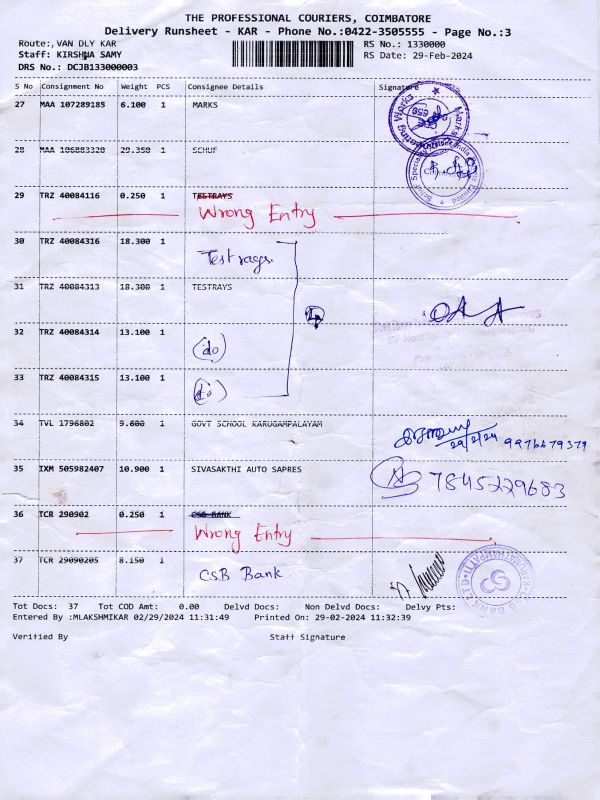 THE PROFESSIONAL COURIERS, COIMBATORE
Delivery Runsheet - KAR - Phone No.:0422-3505555 - Page No.:3
Route:,VAN DLY KAR RS No.: 1330000
Staff: KIRSHNA SAMY RS Date: 29-Feb-2024
DRS No.: DCJB133000003
S No Consignment No Weight PCS Consignee Details Signature
27 MAA 107289185 6.100 1 MARKS
28 MAA 106883320 29.350 1 SCHUF
29 TRZ 40084116 0.250 1 TESTRAYS
Wrong Entry
30 TRZ 40084316 18.300 1
Test rays.
31 TRZ 40084313 18.300 1 TESTRAYS
4
32 TRZ 40084314 13.100 1
(do)
33 TRZ 40084315 13.100 1
34 TVL 1796802 9.600 1 GOVT SCHOOL KARUGAMPALAYAM
29/2/24 9976679379
35 IXM 505982407 10.900 1 SIVASAKTHI AUTO SAPRES
7845229683
36 TCR 290902 0.250 1 CSB BANK
Wrong Entry
37 TCR 29090205 8.150 1
CSB Bank
Tot Docs: 37 Tot COD Amt: 0.00 Delvd Docs: Non Delvd Docs: Delvy Pts:
Entered By :MLAKSHMIKAR 02/29/2024 11:31:49 Printed On: 29-02-2024 11:32:39
Verified By Staff Signature